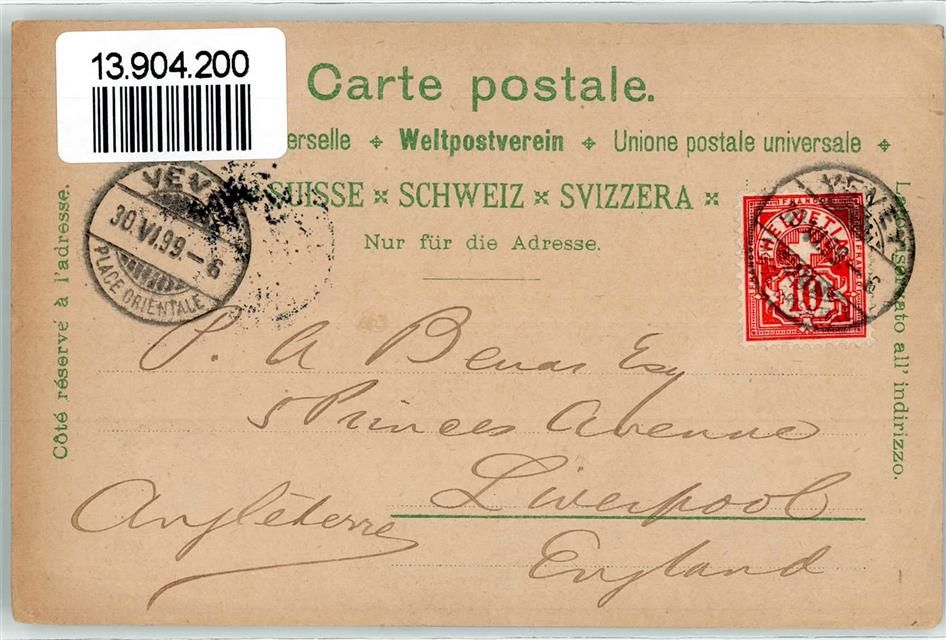 13.904.200
Carte postale.
erselle Weltpostverein Unione postale universale
SUISSE SCHWEIZ SVIZZERA
Nur für die Adresse.
Côté réservé à l'adresse.
all' indirizzo.
VEVEY
30.VI.99–6
PLACE ORIENTALE
VEVEY
HELVETIA
FRANCO
10
P. A Benas Esq
5 Princes Avenue
Liverpool
England
Angléterre